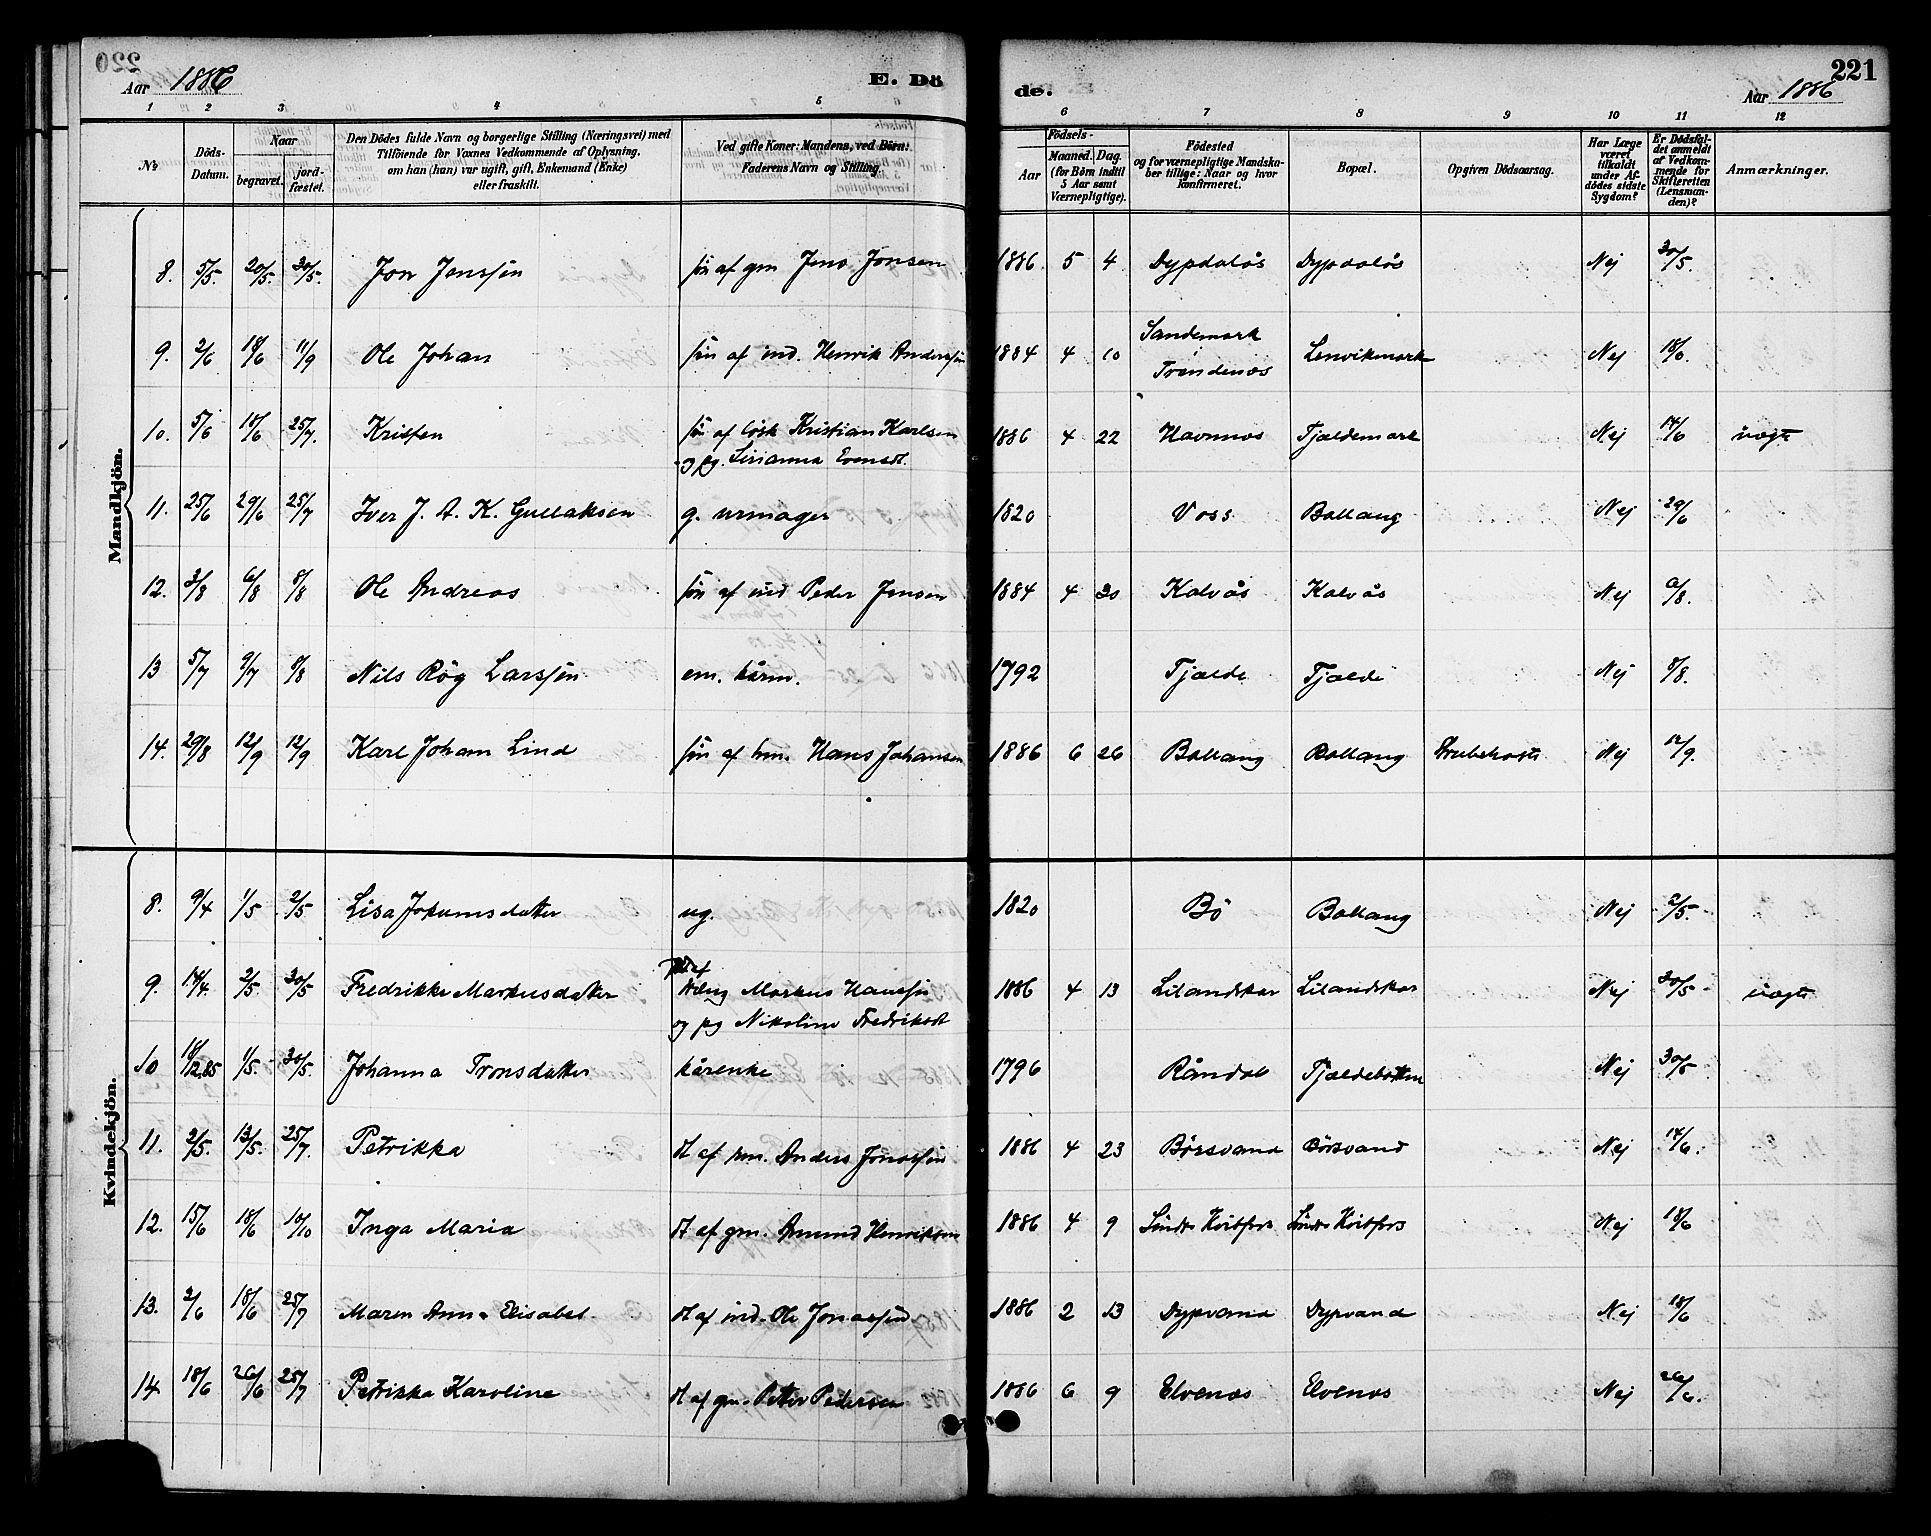 220
Aar 1886
E. Dö
de.
221
Aar 1886
1 2 3 4 5 6 7 8 9 10 11 12
№
Döds-Datum.
Naar
begravet. jord-fæstet.
Den Dödes fulde Navn og borgerlige Stilling (Næringsvei) med
Tilföiende for Voxnes Vedkommende af Oplysning,
om han (hun) var ugift, gift, Enkemand (Enke)
eller fraskilt.
Ved gifte Koner: Mandens, ved Börn:
Faderens Navn og Stilling.
Födsels-
Aar
Maaned. Dag.
(for Börn indtil
5 Aar samt
Værnepligtige).
Födested
og for værnepligtige Mandska-
ber tillige: Naar og hvor
konfirmeret.
Bopæl.
Opgiven Dödsaarsag.
Har Læge
været
tilkaldt
under Af-
dödes sidste
Sygdom?
Er Dödsfal-
det anmeldt
af Vedkom-
mende for
Skifteretten
(Lensman-
den)?
Anmærkninger.
Mandkjön.
8. 5/5. 20/5. 30/5. Jon Jonssøn søn af gm Jens Jonsen 1886 5 4 Dypdalås Dypdalås Nej 30/5.
9. 2/6 18/6 11/9 Ole Johan søn af ind. Henrik Anderssøn 1884 4 10 Sandemark Trondenæs Lenvikmark Nej 18/6.
10. 5/6 18/6 25/7. Kristen søn af løsk Kristian Karlsen
og pg. Sirianna Evensdt. 1886 4 22 Havnnæs Tjældemark Nej 14/6 uægte
11. 25/6 29/6 25/7 Iver J. A. K. Gullaksen g. urmager 1820 Voss Ballang Nej 29/6
12. 3/8 6/8 8/8 Ole Andreas søn af ind Peder Jensen 1884 4 30 Kalvås Kalvås Nej 6/8.
13 5/7 9/7 8/8 Nils Røg Larssøn em. kårm. 1792 Tjælde Tjælde Nej 8/8.
14. 29/8 12/9 12/9 Karl Johan Lind søn af hm. Hans Johansen 1886 6 26 Ballang Ballang Strubehoste Nej 12/9.
Kvindekjön.
8. 9/4 1/5 2/5 Lisa Jokumsdatter ug. 1820 Bø Ballang Nej 2/5.
9. 14/4. 2/5. 30/5 Fredrikke Markusdatter Markus Hanssøn
og pg Nikoline Fredriksdt 1886 4 13 Lilandskar Lilandskar Nej 30/5 uægte
10 18/12.85 1/5. 30/5. Johanna Tronsdatter kårenke 1796 Råndal Tjældebotten Nej 30/5
11. 2/5. 13/5. 25/7. Petrikka dt af hm. Anders Jonassøn 1886 4 23 Børsvand Børsvand Nej 14/6.
12. 15/6 18/6 10/10 Inga Maria dt af gm. Amund Henriksen 1886 4 9 Sündre Kvitfors Sündre Kvitfors Nej 18/6
13. 2/6 18/6 25/7 Maren Anna Elisabet dt af ind. Ole Jonassøn 1886 2 13 Dypvand Dypvand Nej 18/6
14 18/6 26/6 25/7 Petrikka Karoline dt af gm. Petter Pedersen 1886 6 9 Elvenæs Elvenæs Nej 26/6.